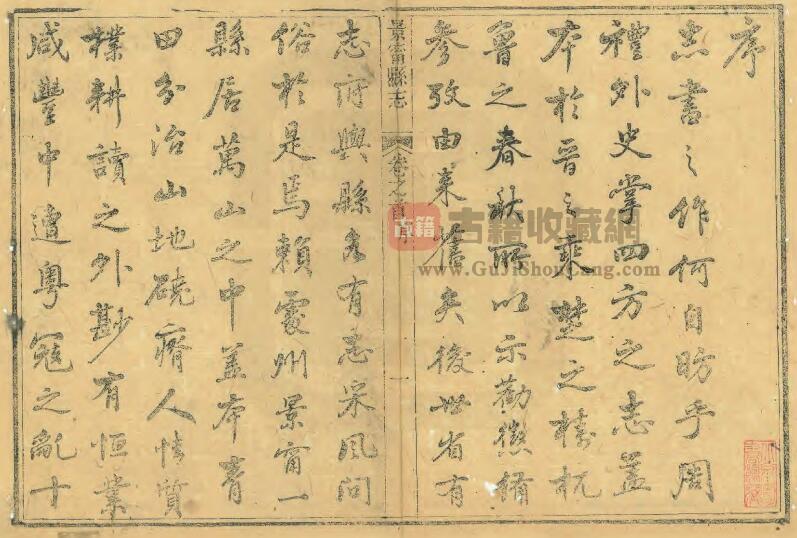 序
志書之作何自昉乎周
禮外史掌四方之志蓋
本於晉之乘楚之檮杌
魯之春秋所以示勸懲備
參攷由來舊矣後世省有
景甯縣志
卷之首序
一
志府與縣各有志采風問
俗於是焉賴處州景甯一
縣居萬山之中蓋本青
田分治山地磽瘠人情質
樸耕讀之外尠有恒業
咸豐中遭粵冦之亂十
古籍
古籍收藏網
www.GuJiShouCang.com